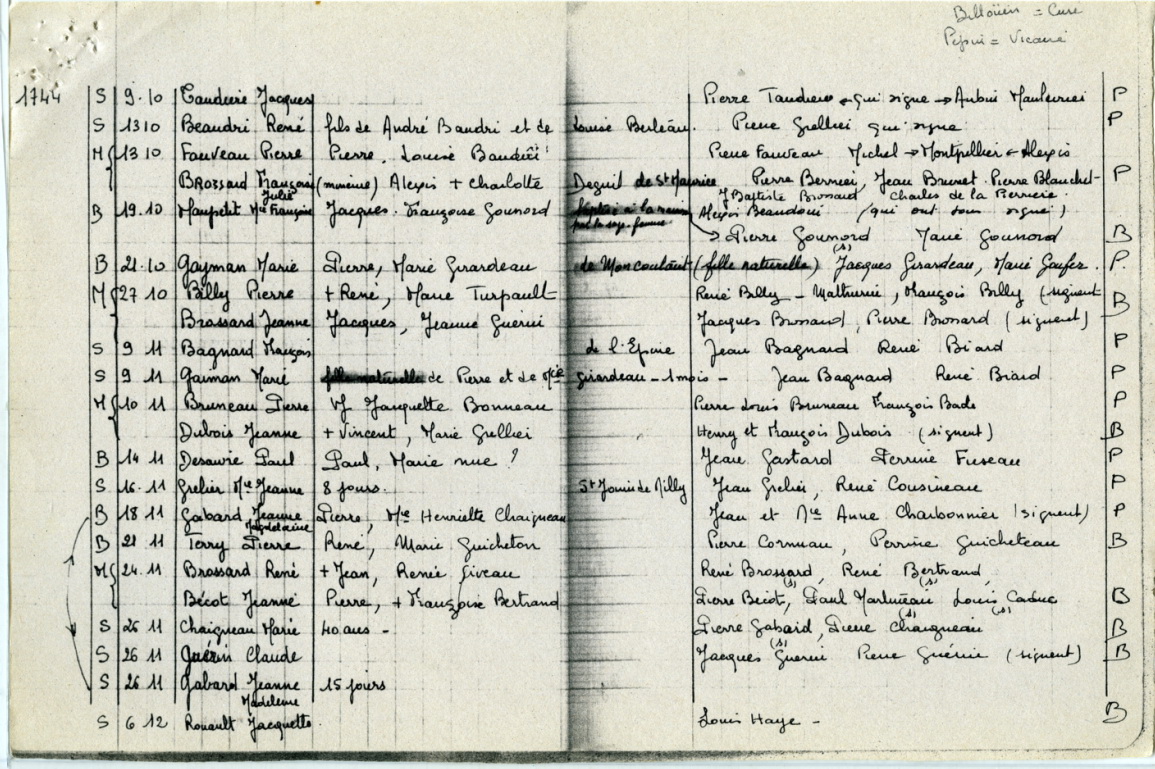 = Curé
= Vicaire
1744 S 9.10 Jacques Pierre qui signe → Aubin P
S 13 10 Beaudri René fils de André Baudri et de Louise Pierre Grellier qui signe P
M 13 10 Fauveau Pierre Pierre. Louise Pierre Fauveau Michel → Montpellier ← Alexis
Brossard Françoise (mineure) Alexis + Charlotte Deguil de St Maurice Pierre Bernier, Jean Brunet. Pierre Blanchet P
Julie J Baptiste Brossard Charles de la
B 19.10 Maupetit Mie Françoise Jacques. Françoise Gounord Alexis Beaudoin (qui ont sous signé)
Pierre Gounord Marie Gounord B
B 21.10 Gayman Marie Pierre, Marie Girardeau de Moncoutant (fille naturelle) Jacques (s) Girardeau, Marie P.
M 27 10 Billy Pierre + René, Marie Turpault René Billy – Mathurin, François Billy (signent B
Brossard Jeanne Jacques, Jeanne Guérin Jacques Brossard, Pierre Brossard (signent)
S 9 11 Bagnard François de l'Epine Jean Bagnard René Biard P
S 9 11 Gaiman Marie fille naturelle de Pierre et de Mie Girardeau – 1 mois – Jean Bagnard René Biard P
M 10 11 Bruneau Pierre Vf Jacquette Bonneau Pierre Louis Bruneau François Bade P
Dubois Jeanne + Vincent, Marie Grellier Henry et François Dubois (signent) B
B 14 11 Desavie Paul Paul, Marie nue ? Jean Gastard Perrine Fuseau P
S 16.11 Grelier Mie Jeanne 8 jours. St Jouin de Milly Jean Grelier, René Cousineau P
B 18 11 Gabard Jeanne Pierre, Mie Henriette Chaigneau Jean et Mie Anne Charbonnier (signent) P
Magdeleine
B 21 11 Terry Pierre René, Marie Guicheton Pierre Cornuau, Perrine Guicheteau B
M 24.11 Brossard René + Jean, Renée Giveau René Brossard, René Bertrand,
Bécot Jeanne Pierre, + Françoise Bertrand Pierre Bécot, (s) Paul Martineau (s) Louis B
S 26 11 Chaigneau Marie 40 ans - Pierre Gabard, Pierre (s) Chaigneau (s) B
S 26 11 Guérin Claude Jacques (s) Guérin Pierre Guérin (signent) B
S 26 11 Gabard Jeanne 15 jours
Madeleine
S 6 12 Rouault Jacquette. Louis Haye – B